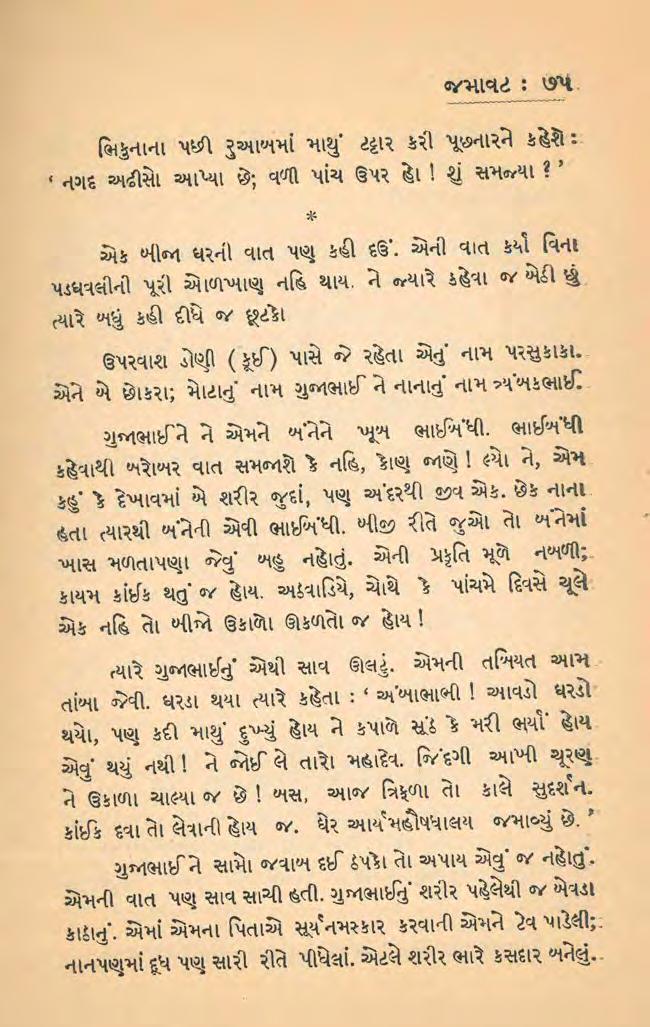 જમાવટ : ૭૫
ભિકુનાના પછી રુઆબમાં માથું ટટ્ટાર કરી પૂછનારને કહેશે :
‘ નગદ અઢીસો આપ્યા છે; વળી પાંચ ઉપર હો ! શું સમજ્યા ? ’
*
એક બીજા ઘરની વાત પણ કહી દઉં. એની વાત કર્યા વિના
પડઘવલીની પૂરી ઓળખાણ નહિ થાય. ને જ્યારે કહેવા જ બેઠી છું
ત્યારે બધું કહી દીધે જ છૂટકો
ઉપરવાશ ડોણી ( કૂઈ ) પાસે જે રહેતા એનું નામ પરસુકાકા.
એને બે છોકરા; મોટાનું નામ ગુજાભાઈ ને નાનાનું નામ ત્ર્યંબકભાઈ.
ગુજાભાઈને ને એમને બંનેને ખૂબ ભાઈબંધી. ભાઈબંધી
કહેવાથી બરોબર વાત સમજાશે કે નહિ, કોણ જાણે ! લ્યો ને, એમ
કહું કે દેખાવમાં બે શરીર જુદાં, પણ અંદરથી જીવ એક. છેક નાના
હતા ત્યારથી બંનેની એવી ભાઈબંધી. બીજી રીતે જુઓ તો બંનેમાં
ખાસ મળતાપણા જેવું બહુ નહોતું. એની પ્રકૃતિ મૂળે નબળી;
કાયમ કાંઈક થતું જ હોય. અઠવાડિયે, ચોથે કે પાંચમે દિવસે ચૂલે
એક નહિ તો બીજો ઉકાળો ઊકળતો જ હોય !
ત્યારે ગુજાભાઈનું એથી સાવ ઊલટું. એમની તબિયત આમ
તાંબા જેવી. ઘરડા થયા ત્યારે કહેતા : ‘ અંબાભાભી ! આવડો ઘરડો
થયો, પણ કદી માથું દુખ્યું હોય ને કપાળે સૂંઠ કે મરી ભર્યાં હોય
એવું થયું નથી ! ને જોઈ લે તારો મહાદેવ. જિંદગી આખી ચૂરણ
ને ઉકાળા ચાલ્યા જ છે ! બસ, આજ ત્રિફળા તો કાલે સુદર્શન.
કાંઈક દવા તો લેવાની હોય જ. ઘેર આર્યમહૌષધાલય જમાવ્યું છે. ’
ગુજાભાઈને સામો જવાબ દઈ ઠપકો તો અપાય એવું જ નહોતું.
એમની વાત પણ સાવ સાચી હતી. ગુજાભાઈનું શરીર પહેલેથી જ બેવડા
કાઠાનું. એમાં એમના પિતાએ સૂર્યનમસ્કાર કરવાની એમને ટેવ પાડેલી;
નાનપણમાં દૂધ પણ સારી રીતે પીધેલાં. એટલે શરીર ભારે કસદાર બનેલું.